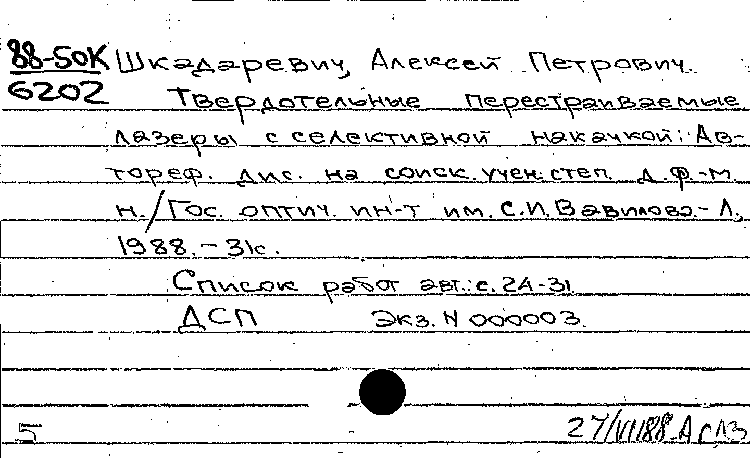 88-50К Шкадаревич, Алексей Петрович.
6202 Твердотельные перестраиваемые
лазеры с селективной накачкой: Ав-
тореф. дис. на соиск. учен. степ. д. ф.-м.
н. / Гос. оптич. ин-т им. С. И. Вавилова. - Л.,
1988. - 31с.
Список работ авт.: с. 24-31.
ДСП Экз. N 000003.
5 27/VI 88